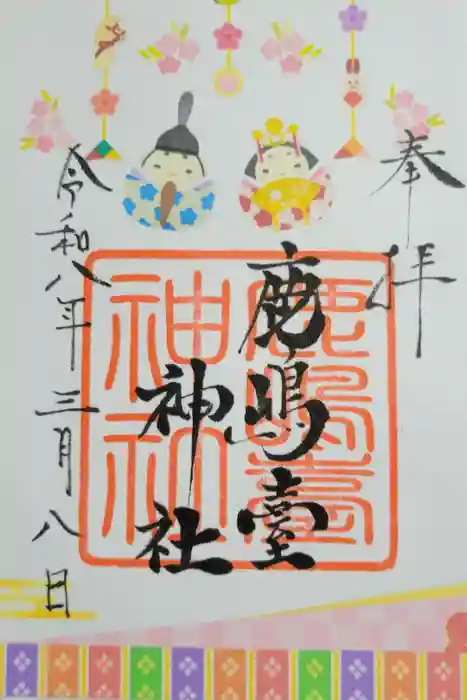 奉拝
鹿嶋臺
神社
鹿嶋臺
神社
令和八年三月八日